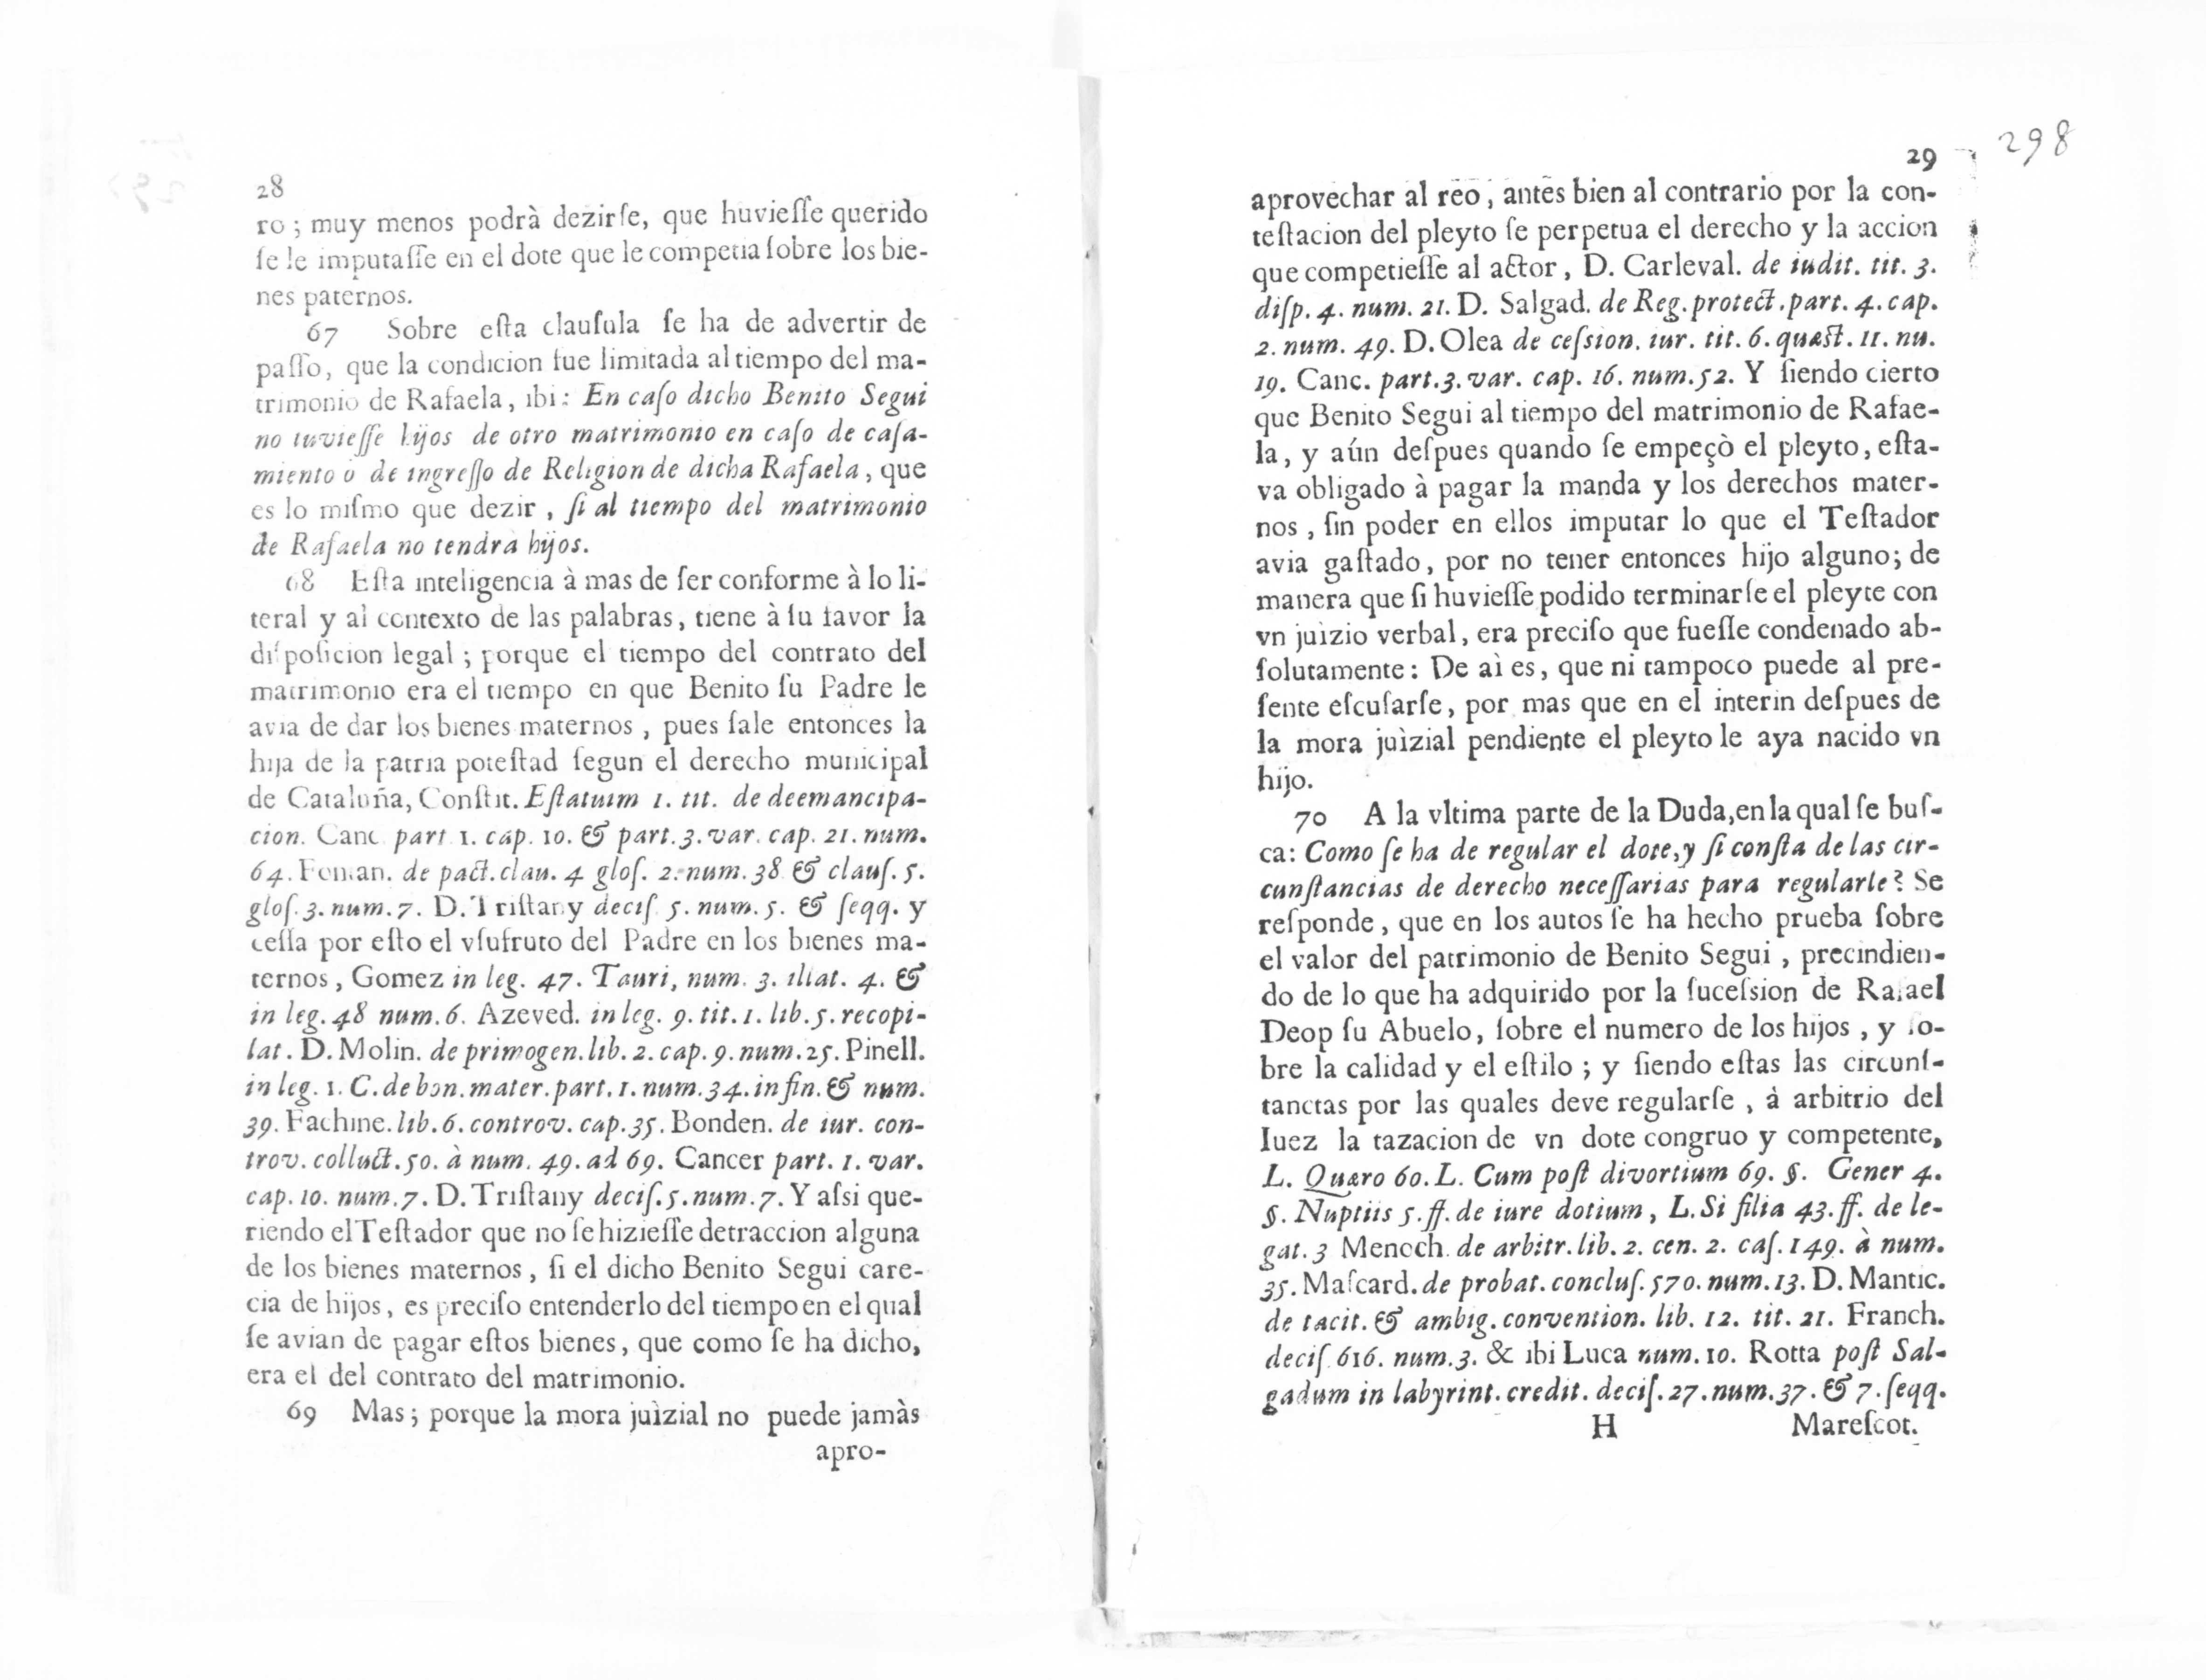 28
ro; muy menos podrà dezirſe, que huvieſſe querido
ſe le imputaſſe en el dote que le competia ſobre los bie-
nes paternos.
67 Sobre eſta clauſula ſe ha de advertir de
paſſo, que la condicion fue limitada al tiempo del ma-
trimonio de Rafaela, ibi: En caſo dicho Benito Segui
no tuvieſſe hijos de otro matrimonio en caſo de caſa-
miento ò de ingreſſo de Religion de dicha Rafaela, que
es lo miſmo que dezir, ſi al tiempo del matrimonio
de Rafaela no tendrà hijos.
68 Eſta inteligencia à mas de ſer conforme à lo li-
teral y al contexto de las palabras, tiene à ſu favor la
diſpoſicion legal; porque el tiempo del contrato del
matrimonio era el tiempo en que Benito ſu Padre le
avia de dar los bienes maternos, pues ſale entonces la
hija de la patria poteſtad ſegun el derecho municipal
de Cataluña, Conſtit. Eſtatuim 1. tit. de deemancipa-
cion. Canc. part. 1. cap. 10. & part. 3. var. cap. 21. num.
64. Fontan. de pact. clau. 4 gloſ. 2. num. 38 & clauſ. 5.
gloſ. 3. num. 7. D. Triſtany deciſ. 5. num. 5. & ſeqq. y
ceſſa por eſto el vſufruto del Padre en los bienes ma-
ternos, Gomez in leg. 47. Tauri, num. 3. illat. 4. &
in leg. 48 num. 6. Azeved. in leg. 9. tit. 1. lib. 5. recopi-
lat. D. Molin. de primogen. lib. 2. cap. 9. num. 25. Pinell.
in leg. 1. C. de bon. mater. part. 1. num. 34. in fin. & num.
39. Fachine. lib. 6. controv. cap. 35. Bonden. de iur. con-
trov. colluct. 50. à num. 49. ad 69. Cancer part. 1. var.
cap. 10. num. 7. D. Triſtany deciſ. 5. num. 7. Y aſsi que-
riendo el Teſtador que no ſe hizieſſe detraccion alguna
de los bienes maternos, ſi el dicho Benito Segui care-
cia de hijos, es preciſo entenderlo del tiempo en el qual
ſe avian de pagar eſtos bienes, que como ſe ha dicho,
era el del contrato del matrimonio.
69 Mas; porque la mora juìzial no puede jamàs
apro-
29
298
aprovechar al reo, antes bien al contrario por la con-
teſtacion del pleyto ſe perpetua el derecho y la accion
que competieſſe al actor, D. Carleval. de iudit. tit. 3.
diſp. 4. num. 21. D. Salgad. de Reg. protect. part. 4. cap.
2. num. 49. D. Olea de ceſsion. iur. tit. 6. quæſt. 11. nu.
19. Canc. part. 3. var. cap. 16. num. 52. Y ſiendo cierto
que Benito Segui al tiempo del matrimonio de Rafae-
la, y aún deſpues quando ſe empeçò el pleyto, eſta-
va obligado à pagar la manda y los derechos mater-
nos, ſin poder en ellos imputar lo que el Teſtador
avia gaſtado, por no tener entonces hijo alguno; de
manera que ſi huvieſſe podido terminarſe el pleyte con
vn juìzio verbal, era preciſo que fueſſe condenado ab-
ſolutamente: De aì es, que ni tampoco puede al pre-
ſente eſcuſarſe, por mas que en el interin deſpues de
la mora juìzial pendiente el pleyto le aya nacido vn
hijo.
70 A la vltima parte de la Duda, en la qual ſe buſ-
ca: Como ſe ha de regular el dote, y ſi conſta de las cir-
cunſtancias de derecho neceſſarias para regularle? Se
reſponde, que en los autos ſe ha hecho prueba ſobre
el valor del patrimonio de Benito Segui, precindien-
do de lo que ha adquirido por la ſuceſsion de Rafael
Deop ſu Abuelo, ſobre el numero de los hijos, y ſo-
bre la calidad y el eſtilo; y ſiendo eſtas las circunſ-
tanctas por las quales deve regularſe, à arbitrio del
Iuez la tazacion de vn dote congruo y competente,
L. Quæro 60. L. Cum poſt divortium 69. §. Gener 4.
§. Nuptiis 5. ff. de iure dotium, L. Si filia 43. ff. de le-
gat. 3 Menoch. de arbitr. lib. 2. cen. 2. caſ. 149. à num.
35. Maſcard. de probat. concluſ. 570. num. 13. D. Mantic.
de tacit. & ambig. convention. lib. 12. tit. 21. Franch.
deciſ. 616. num. 3. & ibi Luca num. 10. Rotta poſt Sal-
gadum in labyrint. credit. deciſ. 27. num. 37. & 7. ſeqq.
H Mareſcot.